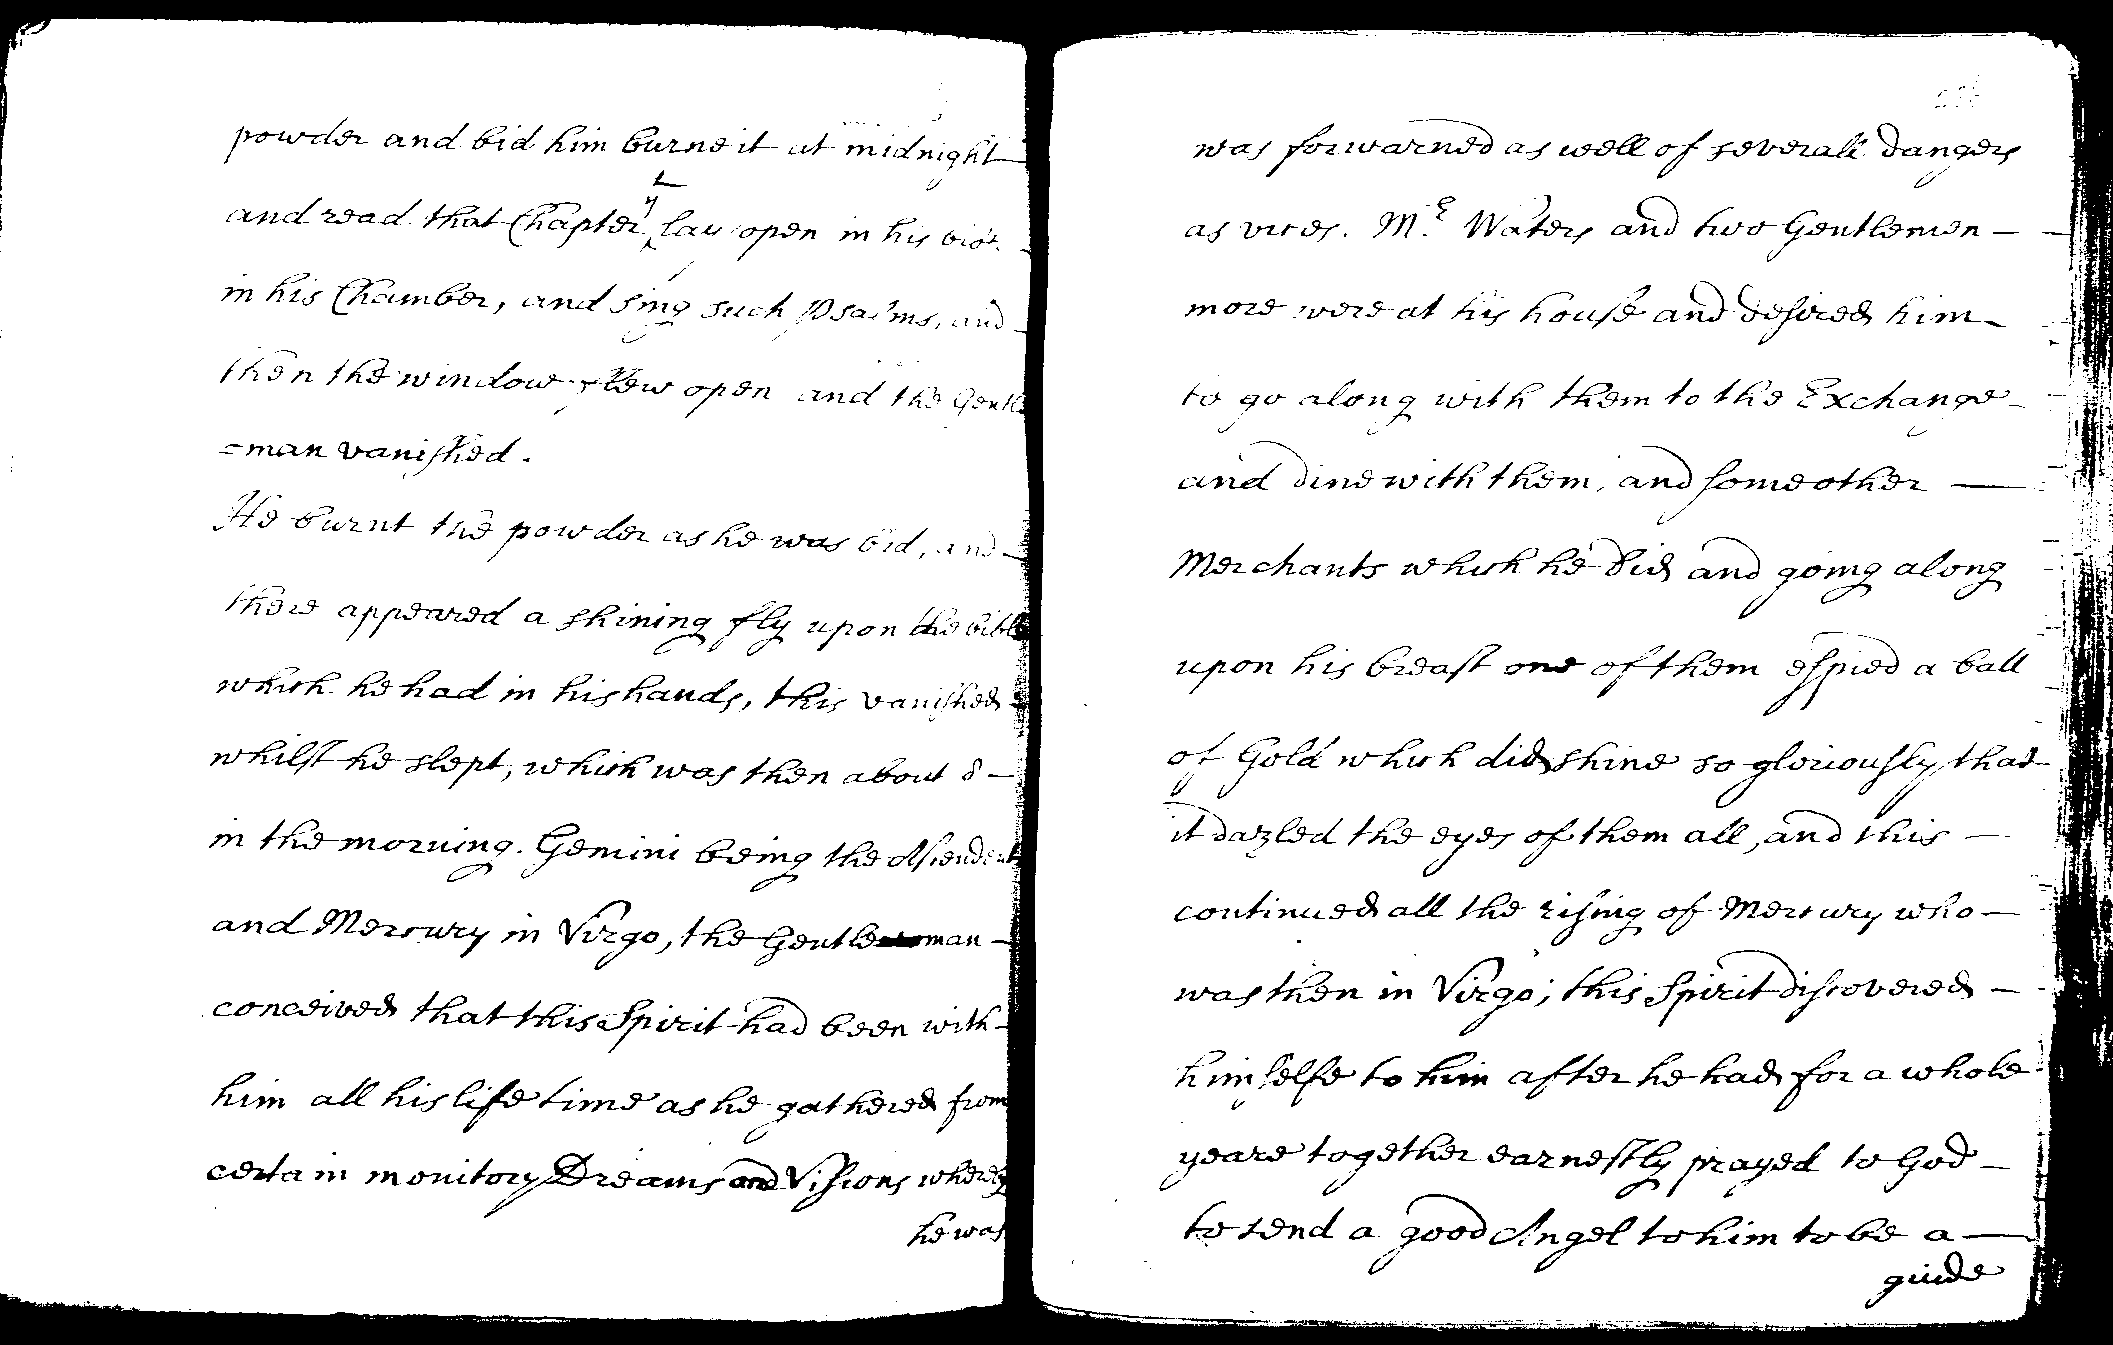 powder and bid him burne it at midnight
and read that Chapter yt lay open in his
in his Chamber, and sing such Psalms, and
then the window flew open and the Gentle
=man vanished.
He burnt the powder as he was bid, and
there appeared a shining fly upon the bible
which he had in his hands, this vanished
whilst he slept, which was then about 8
in the morning. Gemini being the Ascendent
and Mercury in Virgo, the Gentleman
conceived that this Spirit had been with
him all his life time as he gathered from
certain monitory Dreams and Vissions whereby
he was
was forwarned as well of severall dangers
as vices. Mr. Waters and two Gentlemen
more were at his house and desired him
to go along with them to the Exchange
and dine with them, and some other
Merchants which he did and going along
upon his breast one of them espied a ball
of Gold which did shine so gloriously that
it dazled the eyes of them all, and this
continued all the rising of Mercury who
was then in Virgo; this Spirit discovered
himselfe to him after he had for a whole
yeare together earnestly prayed to God
to send a good Angel to him to be a
guide